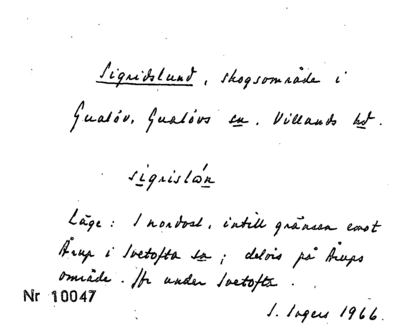 Sigridslund, skogsområde i
Gualöv, Gualövs sn. Villands hd.
sigrislón
Läge: I nordost, intill gränsen mot
Årup i Ivetofta sn; delvis på Årups
område. Jfr under Ivetofta.
Nr 10047
S. Ingers 1966.